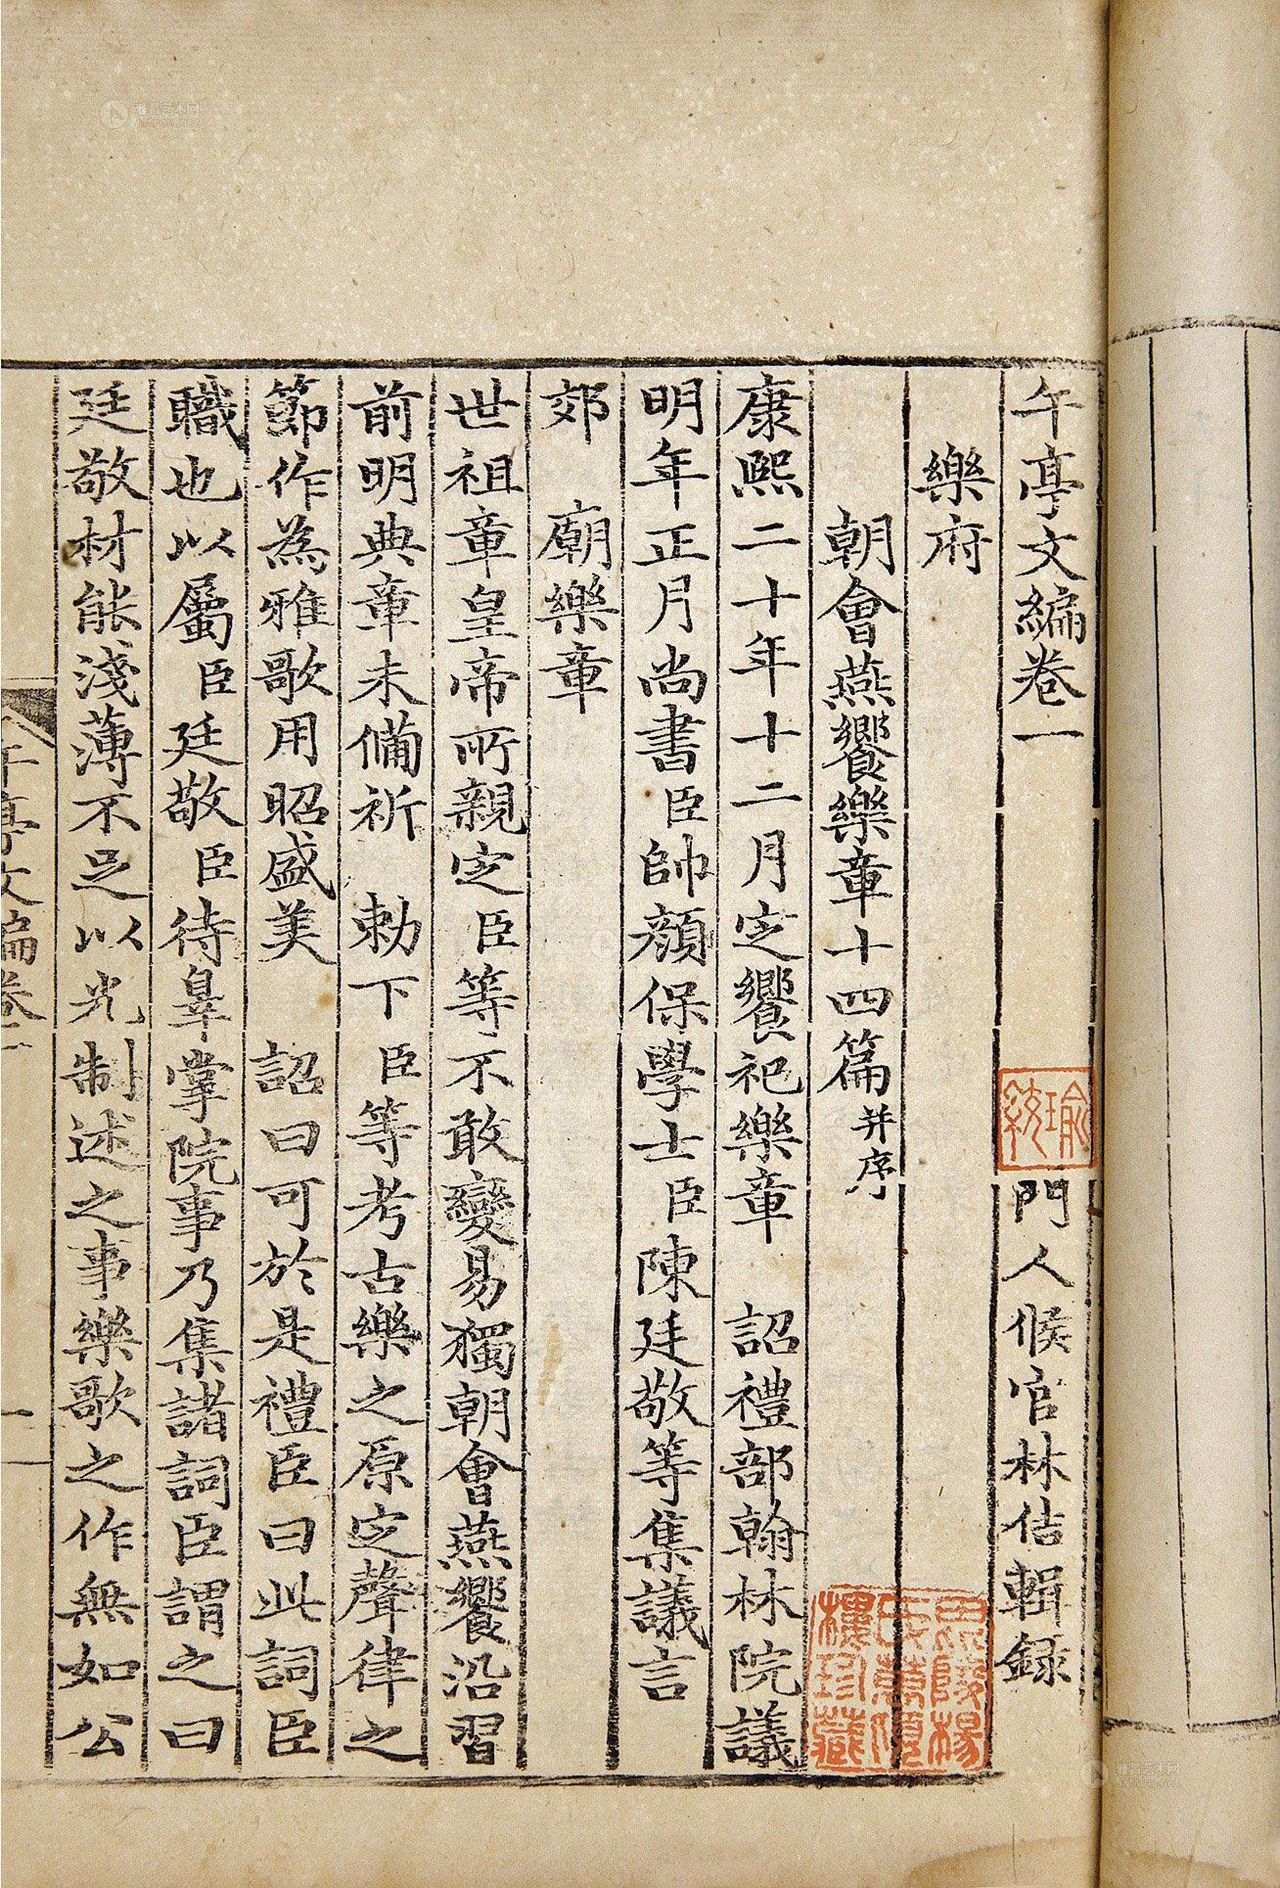 午亭文編卷一
門人候官林佶輯録
樂府
朝會燕饗樂章十四篇并序
康熙二十年十二月定饗祀樂章　詔禮部翰林院議
明年正月尚書臣帥顔保學士臣陳廷敬等集議言
郊　廟樂章
世祖章皇帝所親定臣等不敢變易獨朝會燕饗沿習
前明典章未備祈　勅下臣等考古樂之原定聲律之
節作為雅歌用昭盛美　詔曰可於是禮臣曰此詞臣
職也以屬臣廷敬臣待辠掌院事乃集諸詞臣謂之曰
廷敬材能淺薄不足以光制述之事樂歌之作無如公
午亭文編卷一
一